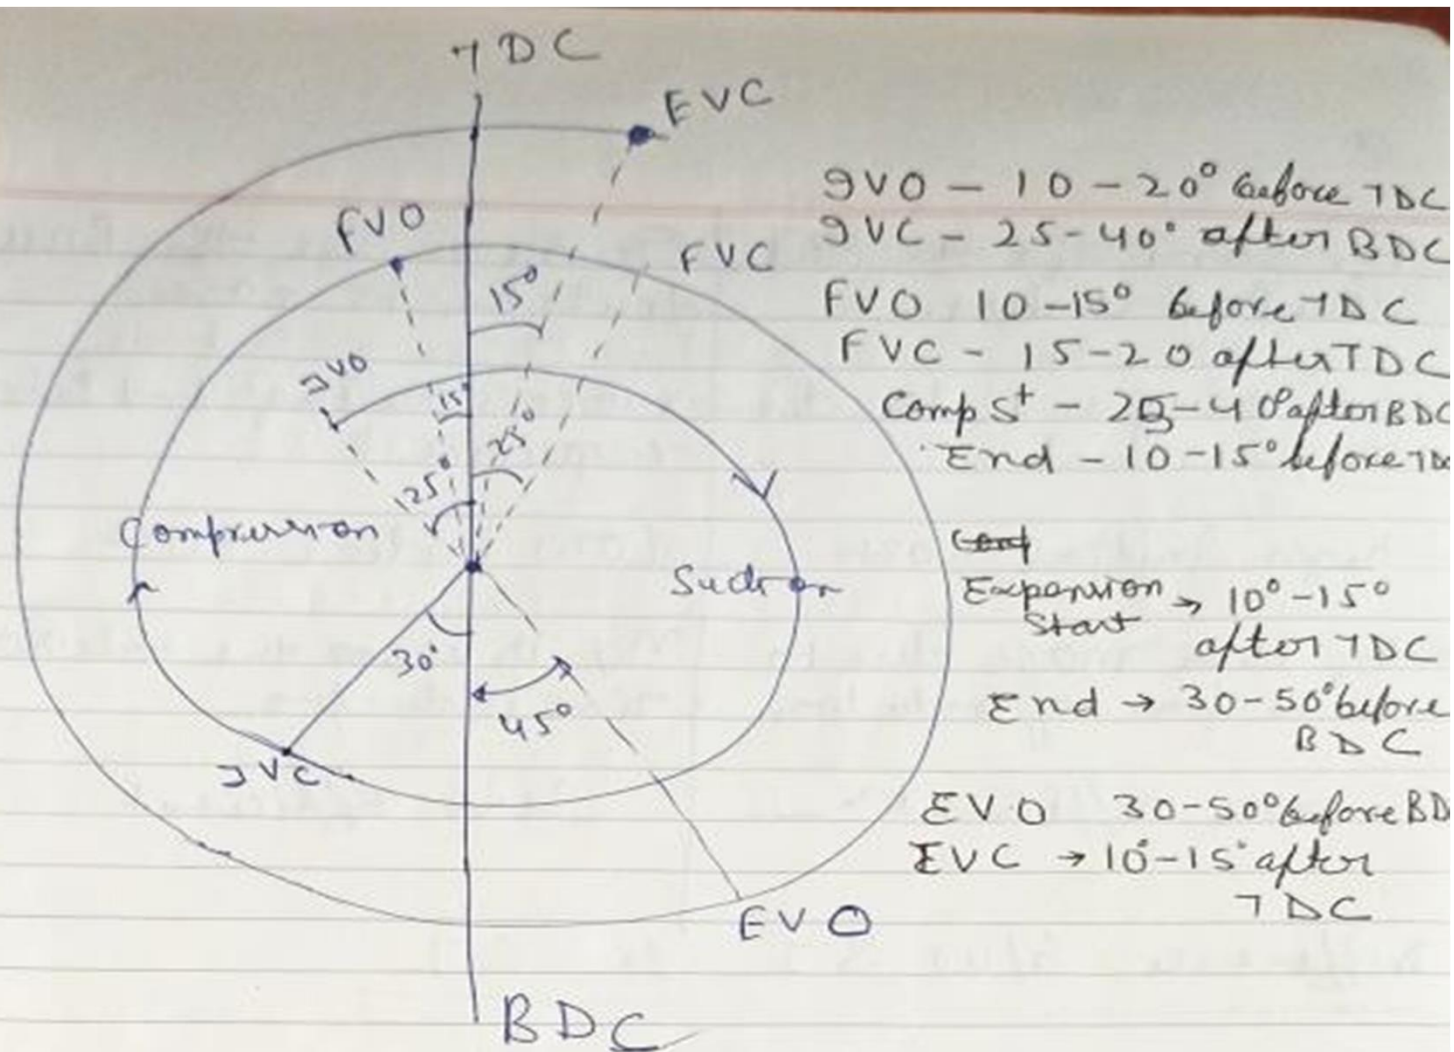 TDC
EVC
FVO
FVC
15°
IVO
15°
25°
25°
Compression
Suction
30°
45°
IVC
EVO
BDC
IVO - 10-20° before TDC
IVC - 25-40° after BDC
FVO 10-15° before TDC
FVC - 15-20 after TDC
Comp St - 25-40° after BDC
End - 10-15° before TDC
Expansion
Start → 10°-15°
after TDC
End → 30-50° before
BDC
EVO 30-50° before BD
EVC → 10°-15° after
TDC